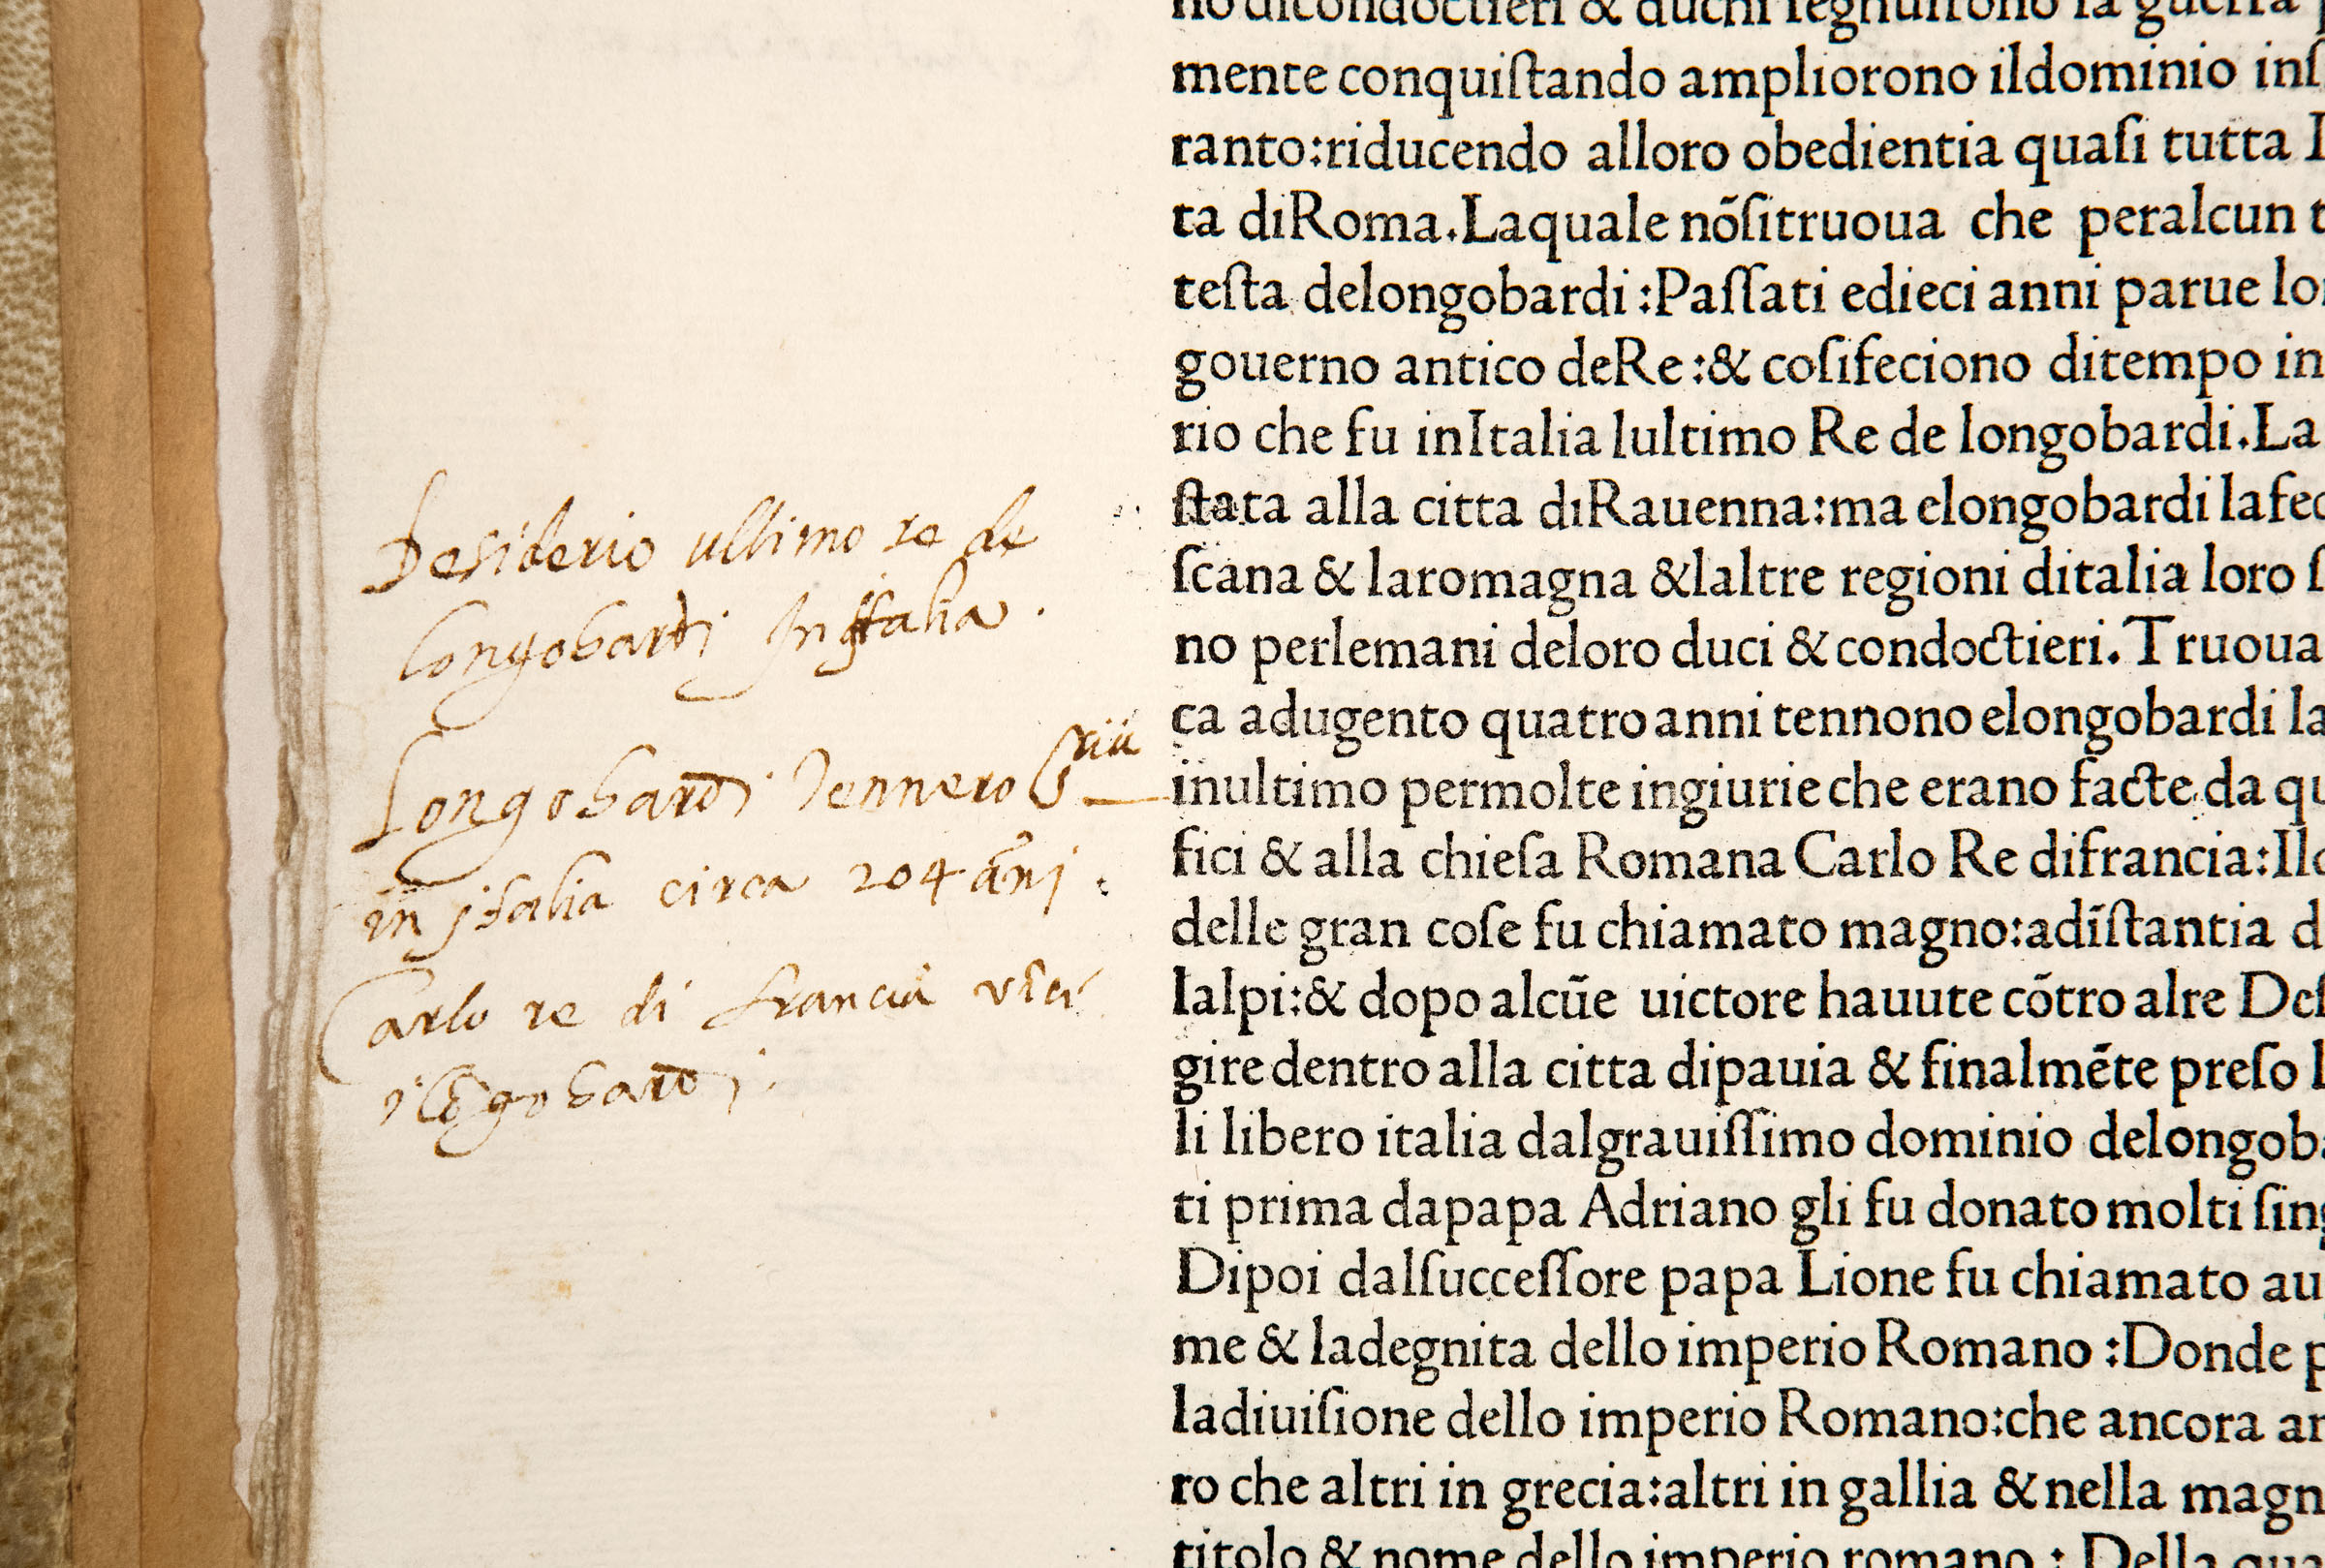 Desiderio ultimo re de
longobardi in italia.
Longobardi tennero
in italia circa 204 āni.
Carlo re di francia
i lōgobardi.
no dicondoctieri & duchi
mente conquiſtando ampliorono ildominio inſ
ranto:riducendo alloro obedientia quaſi tutta I
ta diRoma.Laquale nōſitruoua che peralcun t
teſta delongobardi :Paſſati edieci anni parue lo
gouerno antico deRe :& coſifeciono ditempo in
rio che fu inItalia lultimo Re de longobardi.La
ſtata alla citta diRauenna:ma elongobardi lafec
ſcana & laromagna &laltre regioni ditalia loro ſ
no perlemani deloro duci & condoctieri. Truoua
ca adugento quatro anni tennono elongobardi la
inultimo permolte ingiurie che erano facte da qu
fici & alla chieſa Romana Carlo Re difrancia:Ilc
delle gran coſe fu chiamato magno:adīſtantia d
lalpi:& dopo alcūe uictore hauute cōtro alre Deſ
gire dentro alla citta dipauia & finalmēte preſo l
li libero italia dalgrauiſſimo dominio delongoba
ti prima dapapa Adriano gli fu donato molti ſing
Dipoi dalſucceſſore papa Lione fu chiamato au
me & ladegnita dello imperio Romano :Donde p
ladiuiſione dello imperio Romano:che ancora an
ro che altri in grecia:altri in gallia & nella magn
titolo & nome dello imperio romano : Della qua